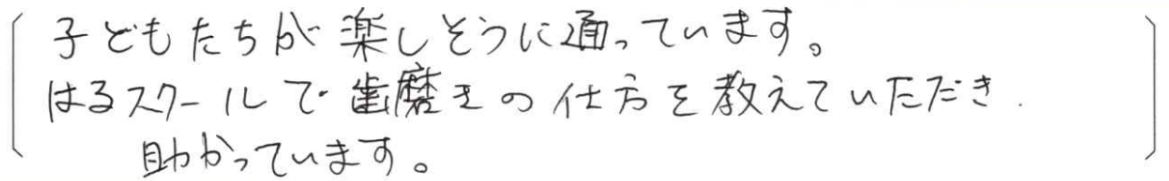 子どもたちが楽しそうに通っています。
はるスクールで歯磨きの仕方を教えていただき
助かっています。